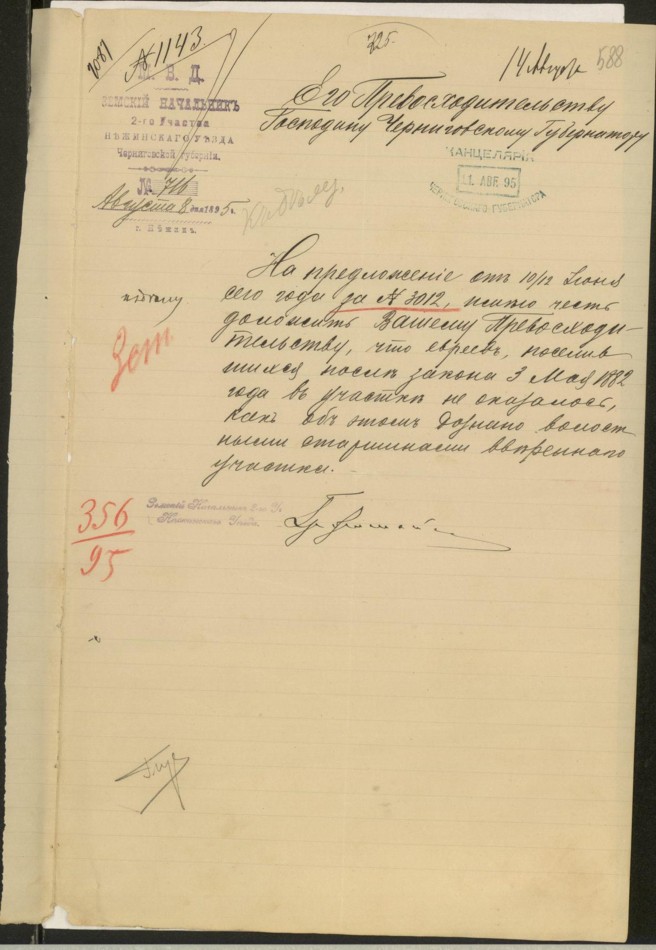 2081
№ 1143
725.
14 Августа
588
М. В. Д.
ЗЕМСКІЙ НАЧАЛЬНИКЪ
2-го Участка
НѢЖИНСКАГО УѢЗДА
Черниговской губерніи.
№ 716
Августа 8 дня 1895 г.
г. Нѣжинъ.
Его Превосходительству
Господину Черниговскому Губернатору
КАНЦЕЛЯРІЯ
11. АВГ. 95
ЧЕРНИГОВСКАГО ГУБЕРНАТОРА
На предложеніе отъ 10/12 Іюня
сего года за № 3012, имѣю честь
доложить Вашему Превосходи-
тельству, что евреевъ, поселив
шихся послѣ закона 3 Мая 1882
года въ участкѣ не оказалось,
какъ объ этомъ дознано волост
ными старшинами ввѣреннаго
участка.
Земскій Начальникъ 2-го Уч.
Нѣжинскаго Уѣзда.
356
95